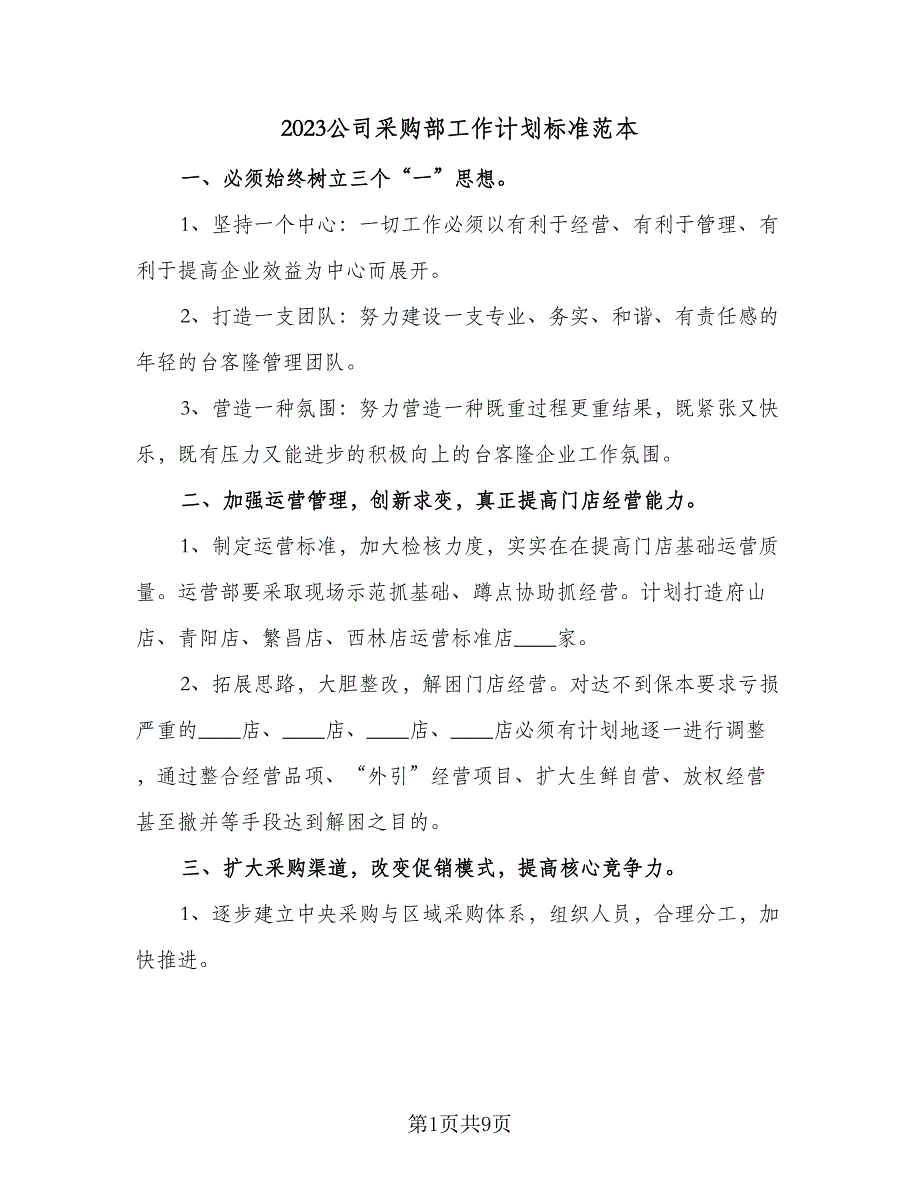 2023公司采购部工作计划标准范本
一、必须始终树立三个“一”思想。
1、坚持一个中心：一切工作必须以有利于经营、有利于管理、有
利于提高企业效益为中心而展开。
2、打造一支团队：努力建设一支专业、务实、和谐、有责任感的
年轻的台客隆管理团队。
3、营造一种氛围：努力营造一种既重过程更重结果，既紧张又快
乐，既有压力又能进步的积极向上的台客隆企业工作氛围。
二、加强运营管理，创新求变，真正提高门店经营能力。
1、制定运营标准，加大检核力度，实实在在提高门店基础运营质
量。运营部要采取现场示范抓基础、蹲点协助抓经营。计划打造府山
店、青阳店、繁昌店、西林店运营标准店____家。
2、拓展思路，大胆整改，解困门店经营。对达不到保本要求亏损
严重的____店、____店、____店、____店必须有计划地逐一进行调整
，通过整合经营品项、“外引”经营项目、扩大生鲜自营、放权经营
甚至撤并等手段达到解困之目的。
三、扩大采购渠道，改变促销模式，提高核心竞争力。
1、逐步建立中央采购与区域采购体系，组织人员，合理分工，加
快推进。
第1页共9页